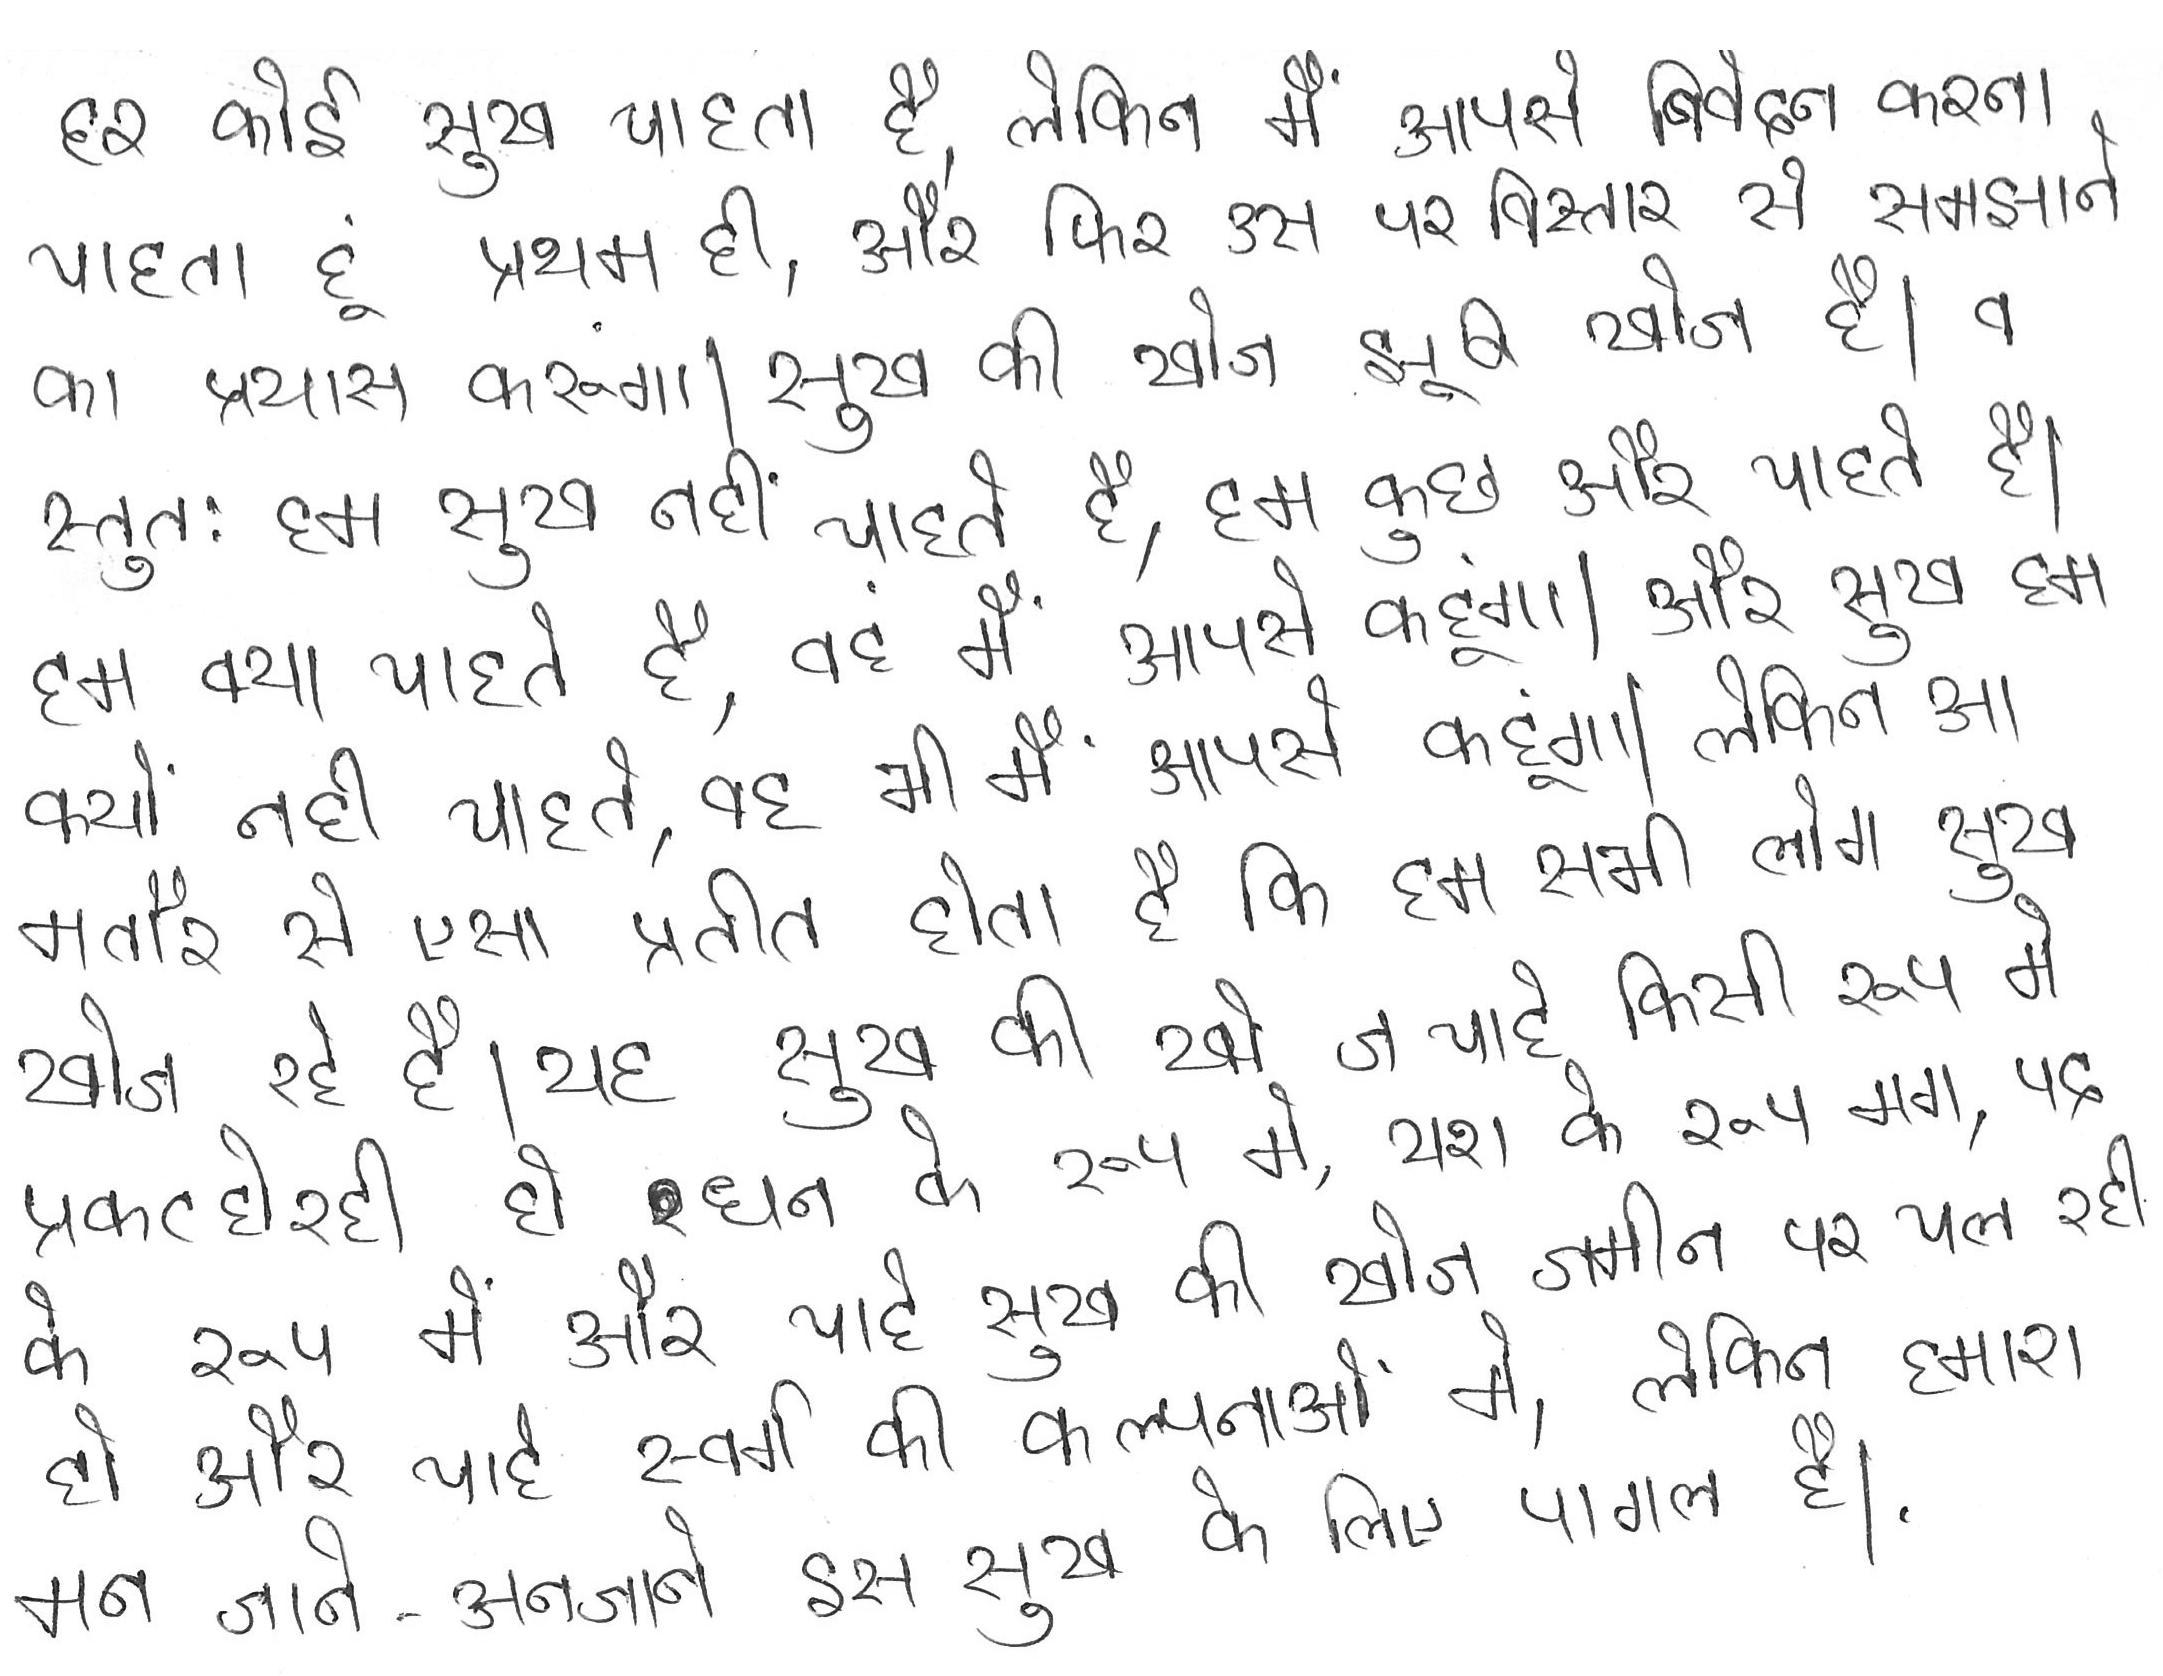 हर कोई सुख चाहता है, लेकिन मैं आपसे निवेदन करना
चाहता हूं प्रथम ही, और फिर उस पर विस्तार से समझाने
का प्रयास करूंगा। सुख की खोज झूठी खोज है। व
स्तुतः हम सुख नहीं चाहते है, हम कुछ और चाहते है।
हम क्या चाहते है, वहं मैं आपसे कहूंगा। और सुख हम
क्यों नही चाहते, वह भी मैं आपसे कहूंगा। लेकिन आ
मतौर से एसा प्रतीत होता है कि हम सभी लोग सुख
खोज रहे है। यह सुख की खो ज चाहे किसी रूप मे
प्रकट हो रही हो धन के रूप मे, यश के रूप मग, पद
के रूप में और चाहे सुख की खोज जमीन पर चल रही
हो और चाहे स्वर्ग की कल्पनाओं मे, लेकिन हमारा
मन जाने-अनजाने इस सुख के लिए पागल है।.